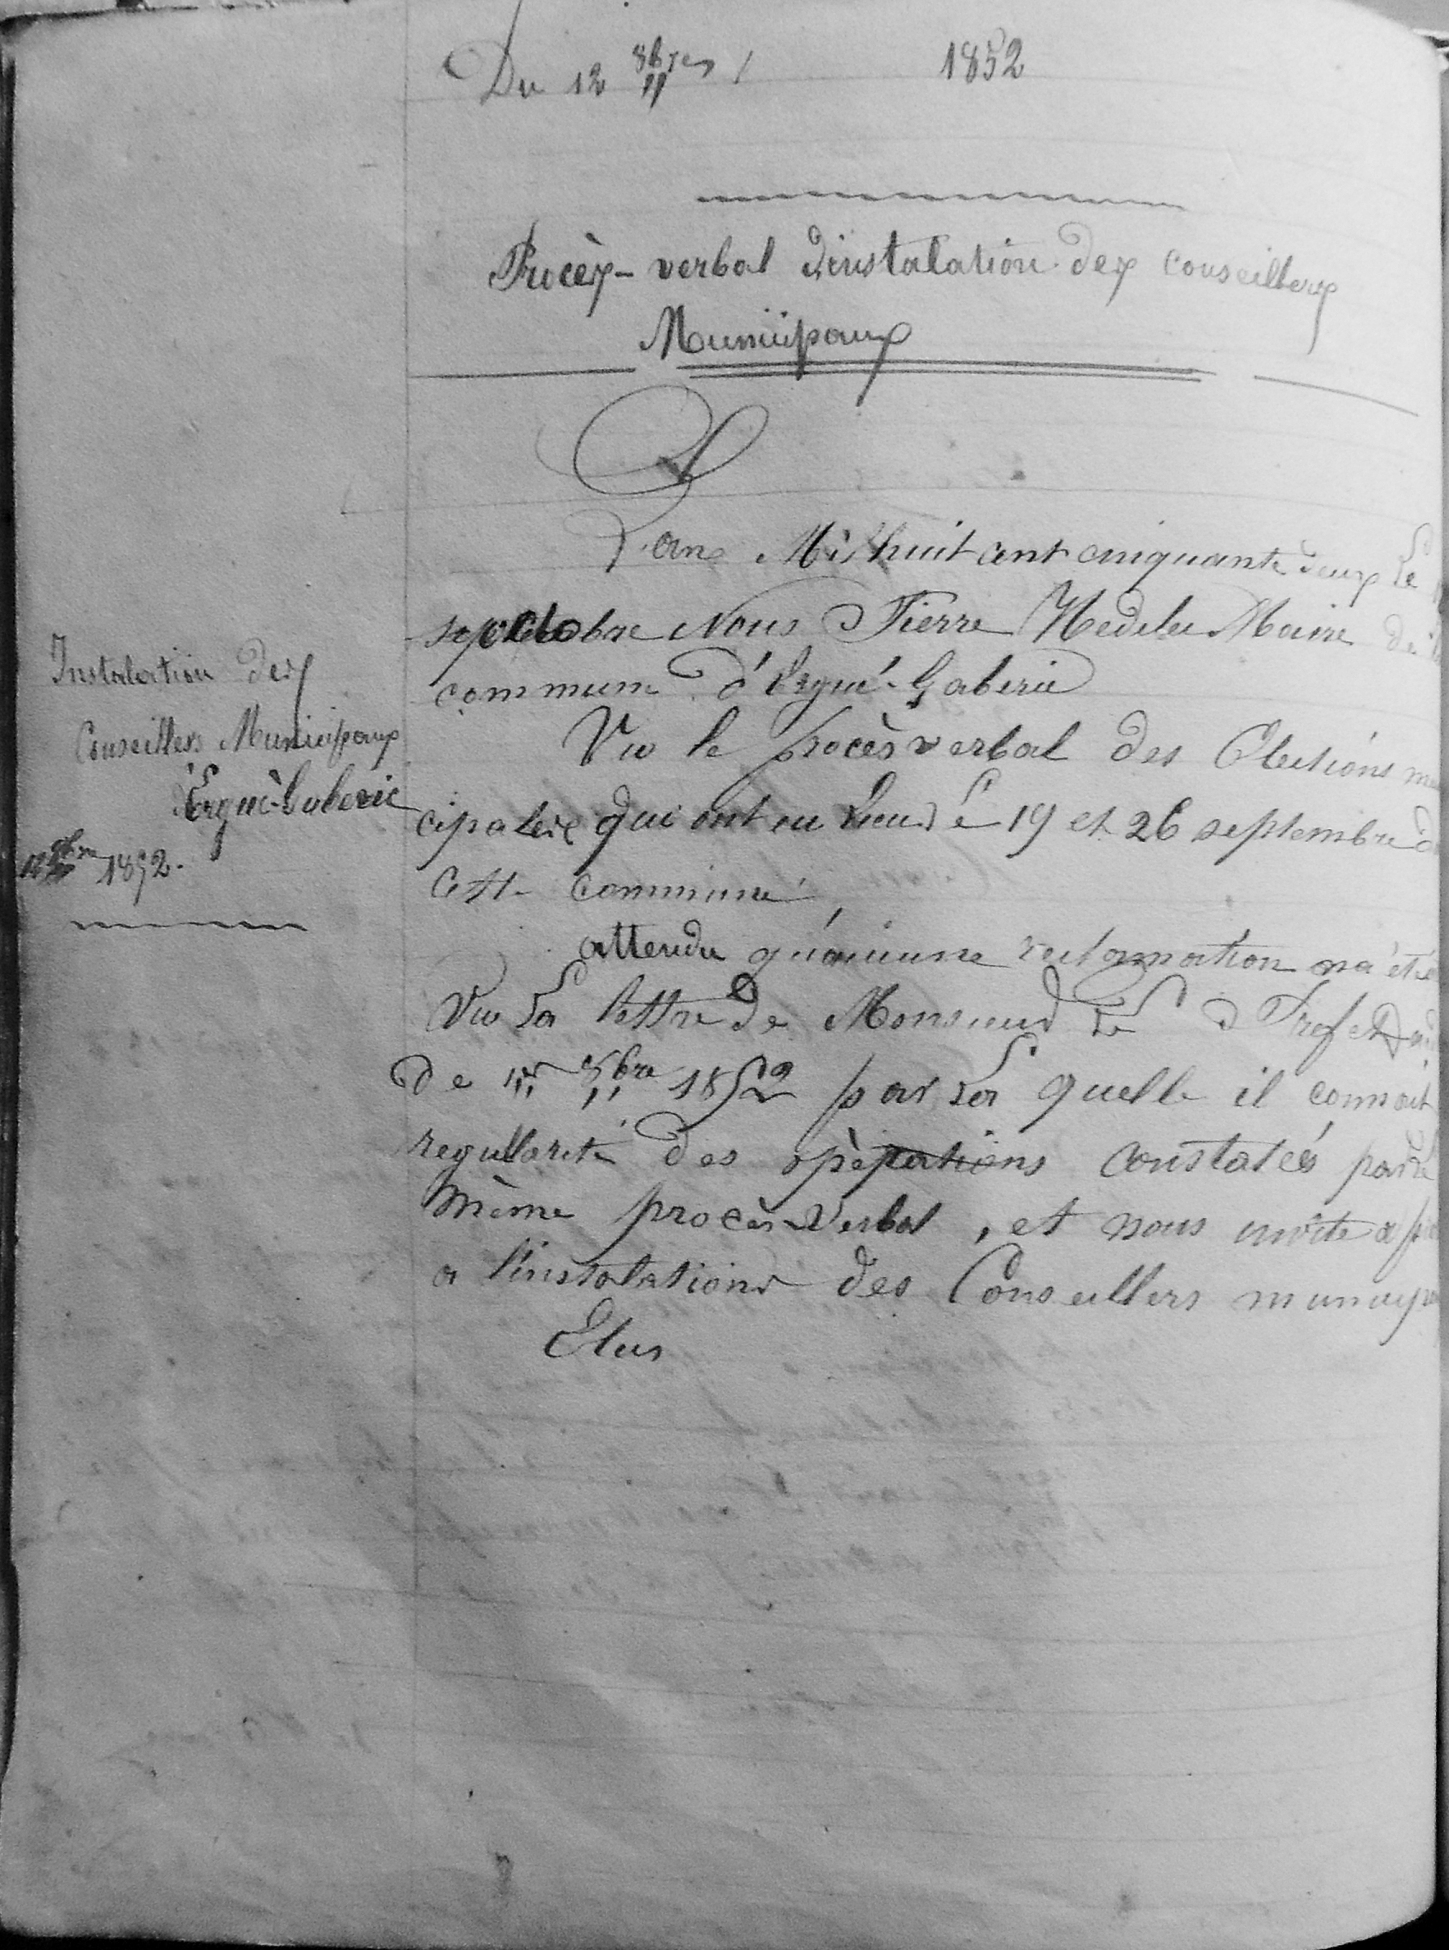 Du 12 8bres 1852
Procès-verbal d'instalation des conseillers
Municipaux
L'an Mil huit cent cinquante deux Le
octobre Nous Pierre Nedelec Maire de
commune d'Ergué-Gaberic
Vu le procès verbal des Elections mu
cipales qui ont eu Lieu Le 19 et 26 septembre
cette commune
attendu qu'aucune reclamation n'a été
Vu La lettre de Monsieur Le Prefet
de 1er 8bre 1852 par La quelle il connait
regullarité des opèrations constatés par le
même procès-Verbal, et nous invite a
a l'instalation des Conseillers municipa
Elus
Instalation des
Conseillers Municipaux
d'Ergué-Gaberic
12 8bre 1852.